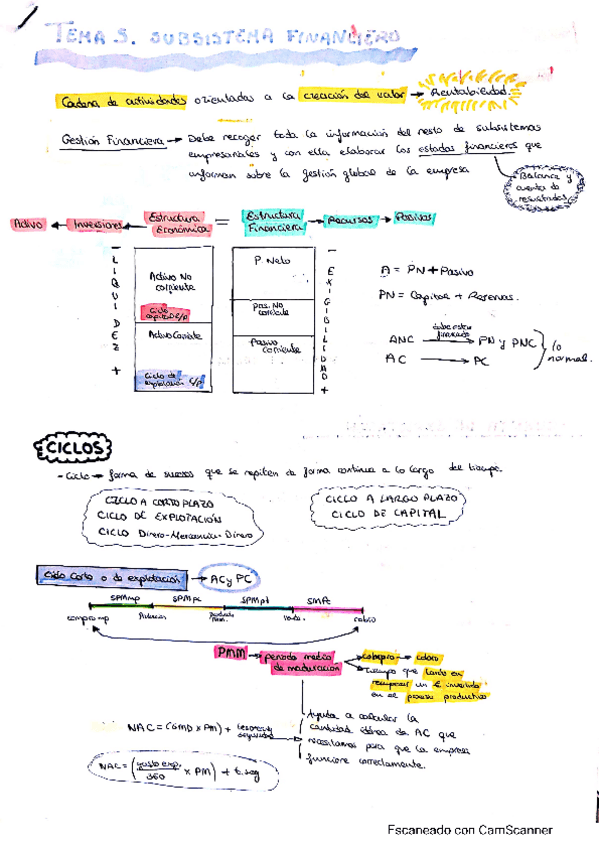 TEMA 5. SUBSISTEMA FINANCIERO
Cadena de actividades orientadas a la creación del valor → Rentabilidad.
Gestión Financiera → Debe recoger toda la información del resto de subsistemas
empresariales y con ella elaborar los estados financieros que
informan sobre la gestión global de la empresa
Balance y
cuenta de
resultados
Activo ← Inversiones ← Estructura Económica = Estructura Financiera → Recursos → Pasivos
- LIQUIDEZ +
Activo No
corriente
Ciclo
Activo Corriente
Ciclo de
explotación C/p
P. Neto
pas. No
corriente
Pasivo
corriente
- EXIGIBILIDAD +
A = PN + Pasivo
PN = Capital + Reservas.
ANC → PN y PNC
AC → PC
lo
normal.
CICLOS
- Ciclo → forma de sucesos que se repiten de forma continua a lo largo del tiempo.
CICLO A CORTO PLAZO
CICLO DE EXPLOTACIÓN
CICLO Dinero-Mercancías-Dinero
CICLO A LARGO PLAZO
CICLO DE CAPITAL
Ciclo corto o de explotación → AC y PC
compra mp
cobro
PMM → periodo medio
de maduración
→ cobro
tiempo que tarda en
recuperar un € invertido
en el proceso productivo
Ayuda a calcular la
cantidad idónea de AC que
necesitamos para que la empresa
funcione correctamente.
NAC = (GMD x PM) + tesorería
NAC = (gasto exp. / 360 x PM) + t. seg
Escaneado con CamScanner